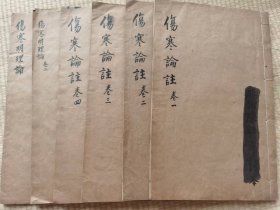 傷寒論註 卷一
傷寒論註 卷二
傷寒論註 卷三
傷寒論註 卷四
傷寒明理論 卷二
傷寒明理論